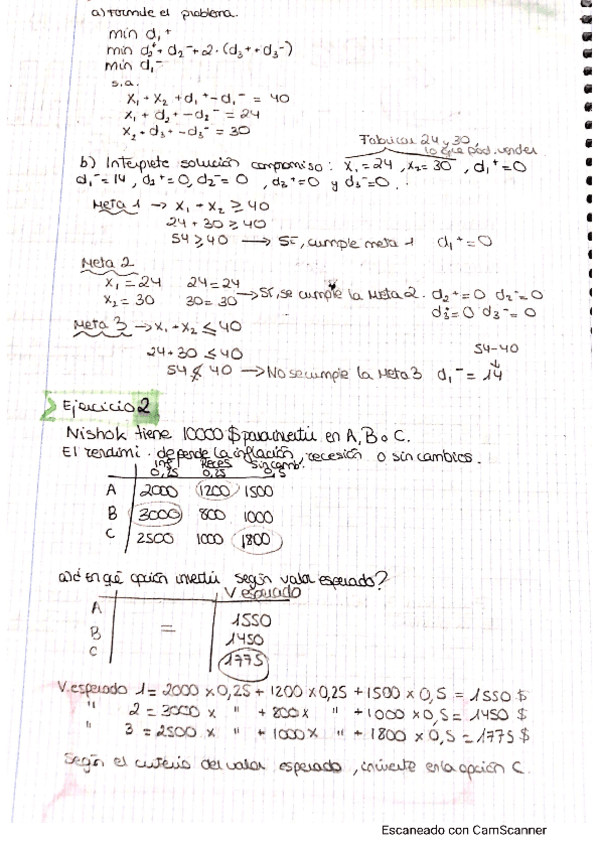 a) Formule el problema.
min d₁⁺
min d₂⁺ + d₂⁻ + 2·(d₃⁺ + d₃⁻)
min d₁⁻
s.a.
x₁ + x₂ + d₁⁺ - d₁⁻ = 40
x₁ + d₂⁺ - d₂⁻ = 24
x₂ + d₃⁺ - d₃⁻ = 30
Fabricar 24 y 30
lo que pod. vender
b) Interprete solución compromiso: x₁ = 24, x₂ = 30, d₁⁺ = 0
d₁⁻ = 14, d₂⁺ = 0, d₂⁻ = 0, d₃⁺ = 0 y d₃⁻ = 0.
Meta 1 → x₁ + x₂ ≥ 40
24 + 30 ≥ 40
54 ≥ 40 → Sí, cumple meta 1 d₁⁺ = 0
Meta 2
x₁ = 24 24 = 24
x₂ = 30 30 = 30 → Sí, se cumple la Meta 2. d₂⁺ = 0 d₂⁻ = 0
d₃⁺ = 0 d₃⁻ = 0
Meta 3 → x₁ + x₂ ≤ 40
24 + 30 ≤ 40 54-40
54 ≰ 40 → No se cumple la Meta 3 d₁⁻ = 14
Ejercicio 2
Nishok tiene 10000 $ para invertir en A, B o C.
El rendimi. depende la inflación, recesión o sin cambios.
Infl Reces sin camb.
0,25 0,25 0,5
A 2000 1200 1500
B 3000 800 1000
C 2500 1000 1800
a) ¿En qué opción invertir según valor esperado?
V esperado
A 1550
B = 1450
C 1775
V. esperado 1 = 2000 x 0,25 + 1200 x 0,25 + 1500 x 0,5 = 1550 $
" 2 = 3000 x " + 800 x " + 1000 x 0,5 = 1450 $
" 3 = 2500 x " + 1000 x " + 1800 x 0,5 = 1775 $
Según el criterio del valor esperado, invierte en la opción C.
Escaneado con CamScanner